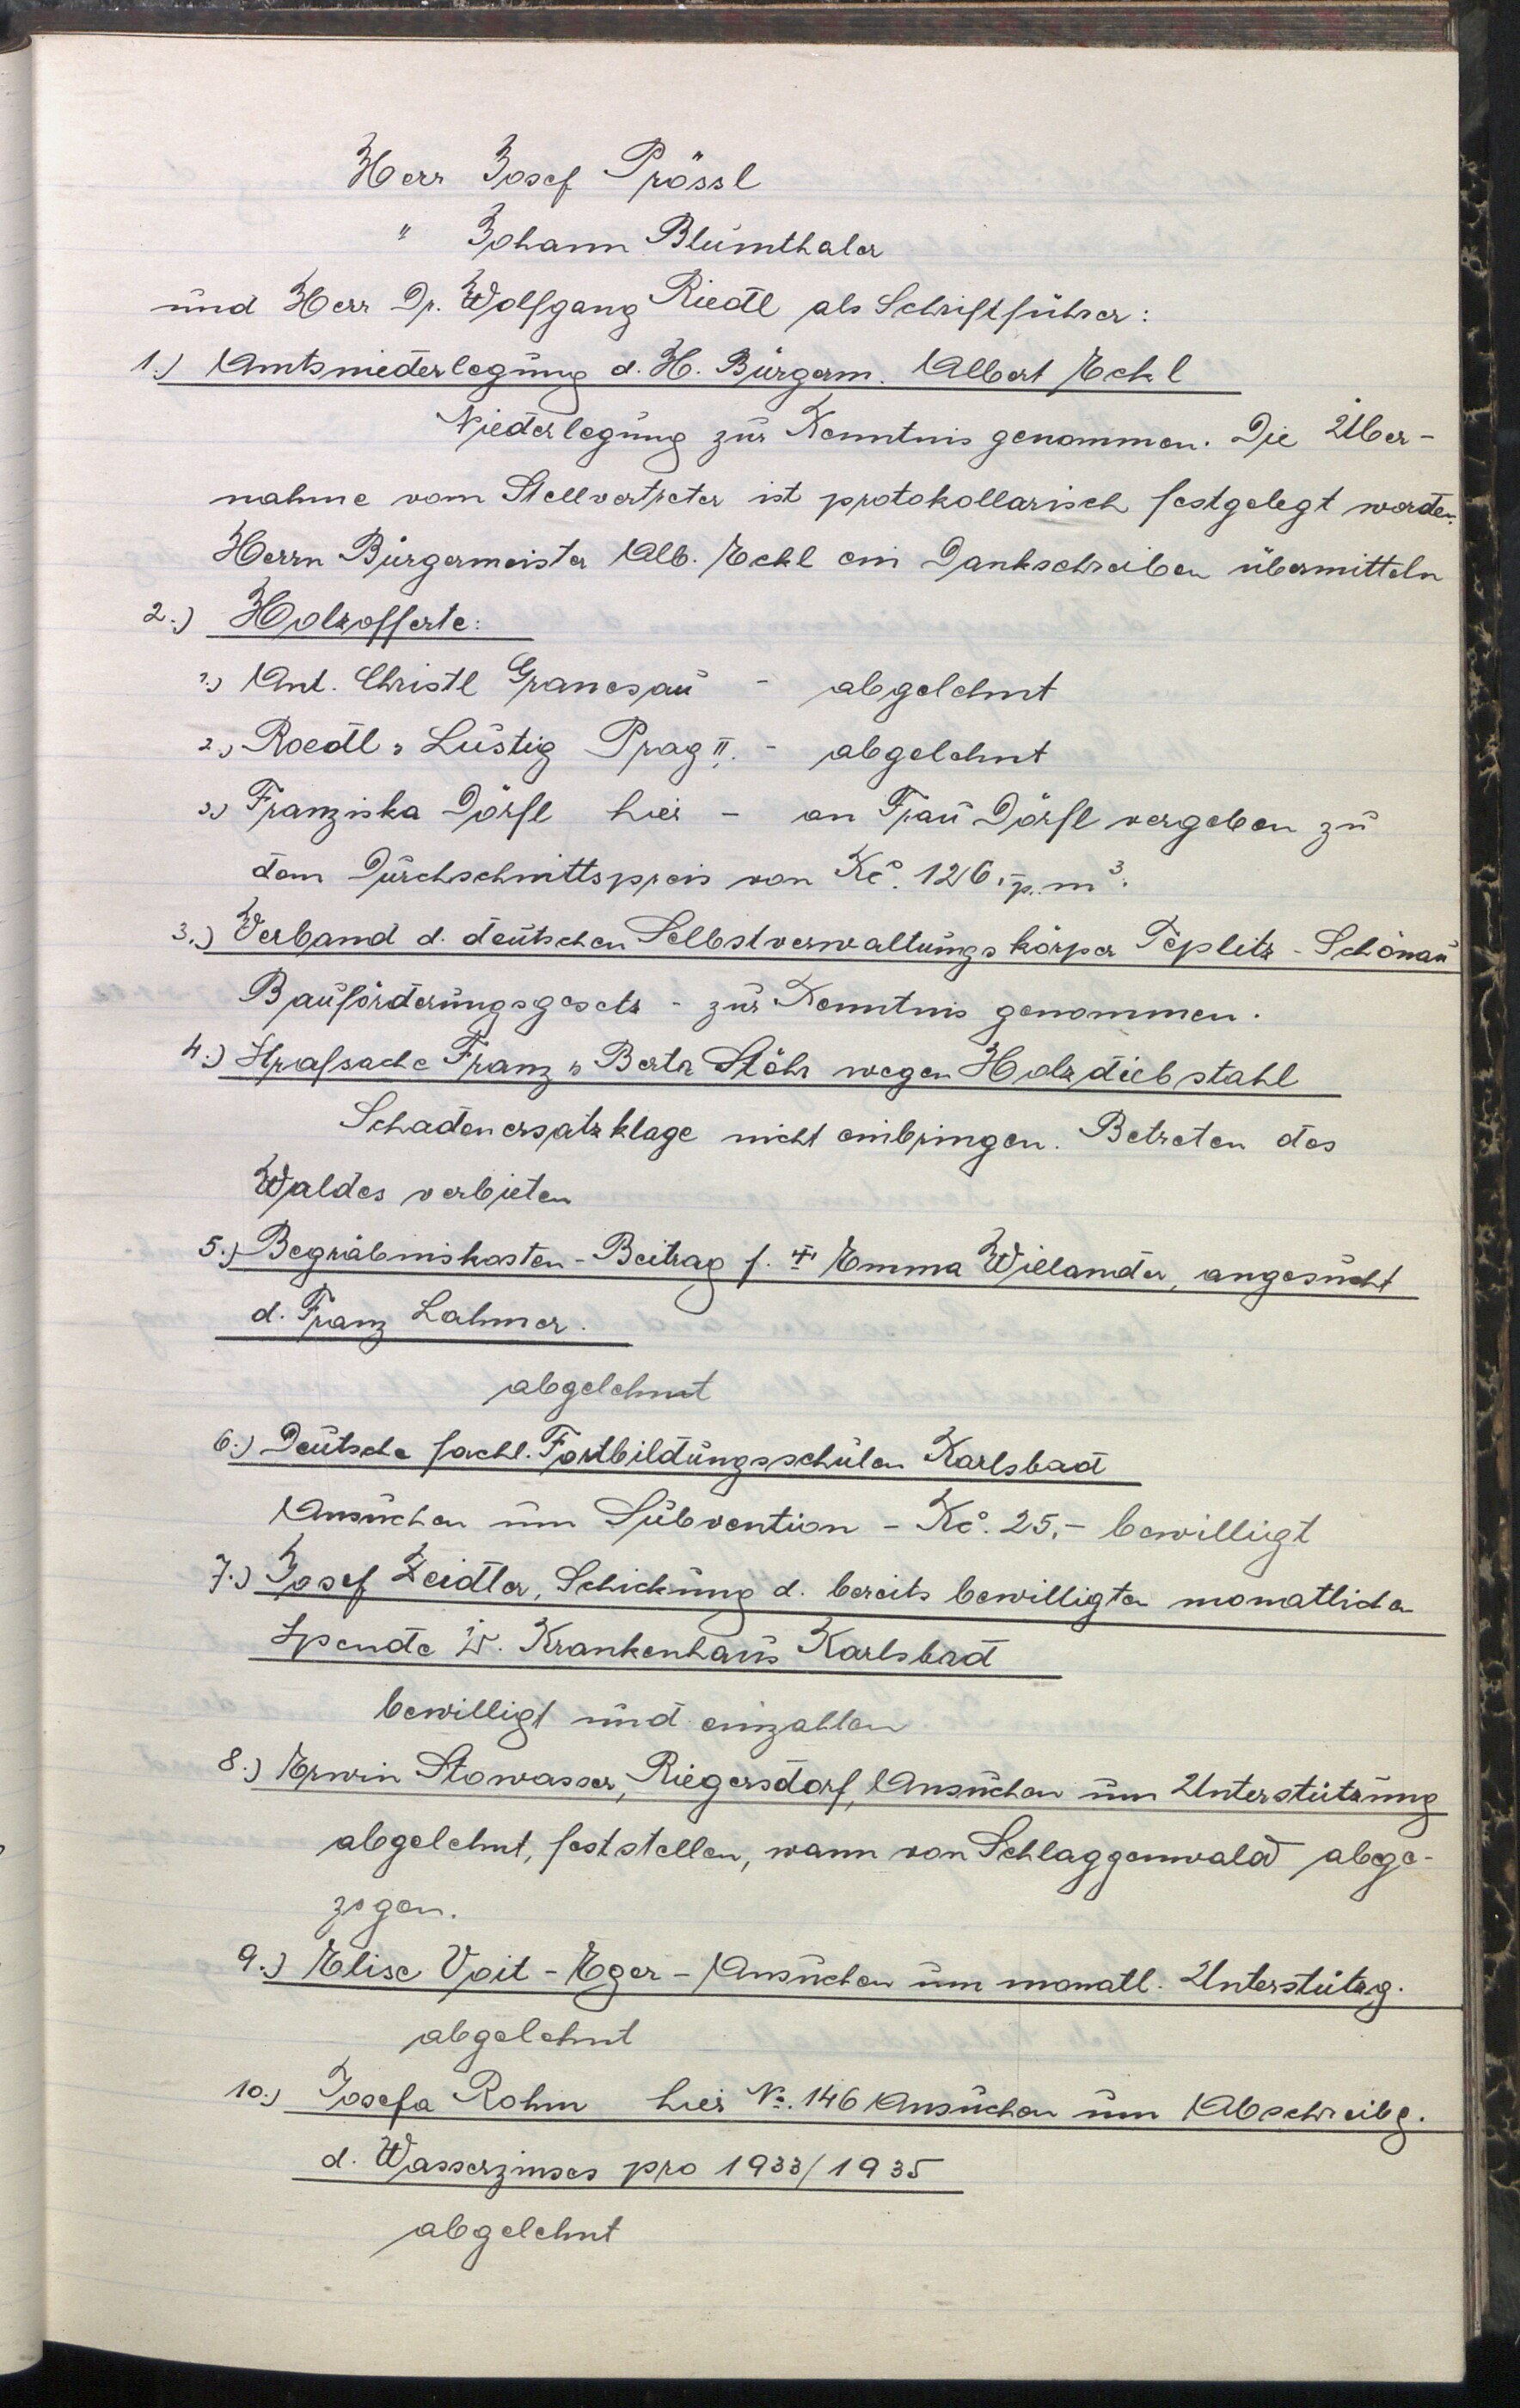 Herr Josef Prössl
" Johann Blumthaler
und Herr Dr. Wolfgang Riedl als Schriftführer:
1.) Amtsniederlegung d. H. Bürgerm. Albert Eckl
Niederlegung zur Kenntnis genommen. Die Über-
nahme vom Stellvertreter ist protokollarisch festgelegt worden.
Herrn Bürgermeister Alb. Eckl ein Dankschreiben übermitteln
2.) Holzofferte:
1.) Ant. Christl Granesau - abgelehnt
2.) Roedl & Lustig Prag II. - abgelehnt
3.) Franziska Dörfl hier - an Frau Dörfl vergeben zu
dem Durchschnittspreis von Kč. 126.- p. m³.
3.) Verband d. deutschen Selbstverwaltungskörper Teplitz-Schönau
Bauförderungsgesetz - zur Kenntnis genommen.
4.) Strafsache Franz & Berta Stöhr wegen Holzdiebstahl
Schadenersatzklage nicht einbringen. Betreten des
Waldes verbieten
5.) Begräbniskosten-Beitrag f. † Emma Wielander, angesucht
d. Franz Lahmer.
abgelehnt
6.) Deutsche fachl. Fortbildungsschulen Karlsbad
Ansuchen um Subvention - Kč. 25.- bewilligt
7.) Josef Zeidler, Schickung d. bereits bewilligten monatlichen
Spende i. d. Krankenhaus Karlsbad
bewilligt und einzahlen
8.) Erwin Stowasser, Riegersdorf, Ansuchen um Unterstützung
abgelehnt, feststellen, wann von Schlaggenwald abge-
zogen.
9.) Elise Voit - Eger - Ansuchen um monatl. Unterstützg.
abgelehnt
10.) Josefa Rohm hier No. 146 Ansuchen um Abschreibg.
d. Wasserzinses pro 1933/1935
abgelehnt